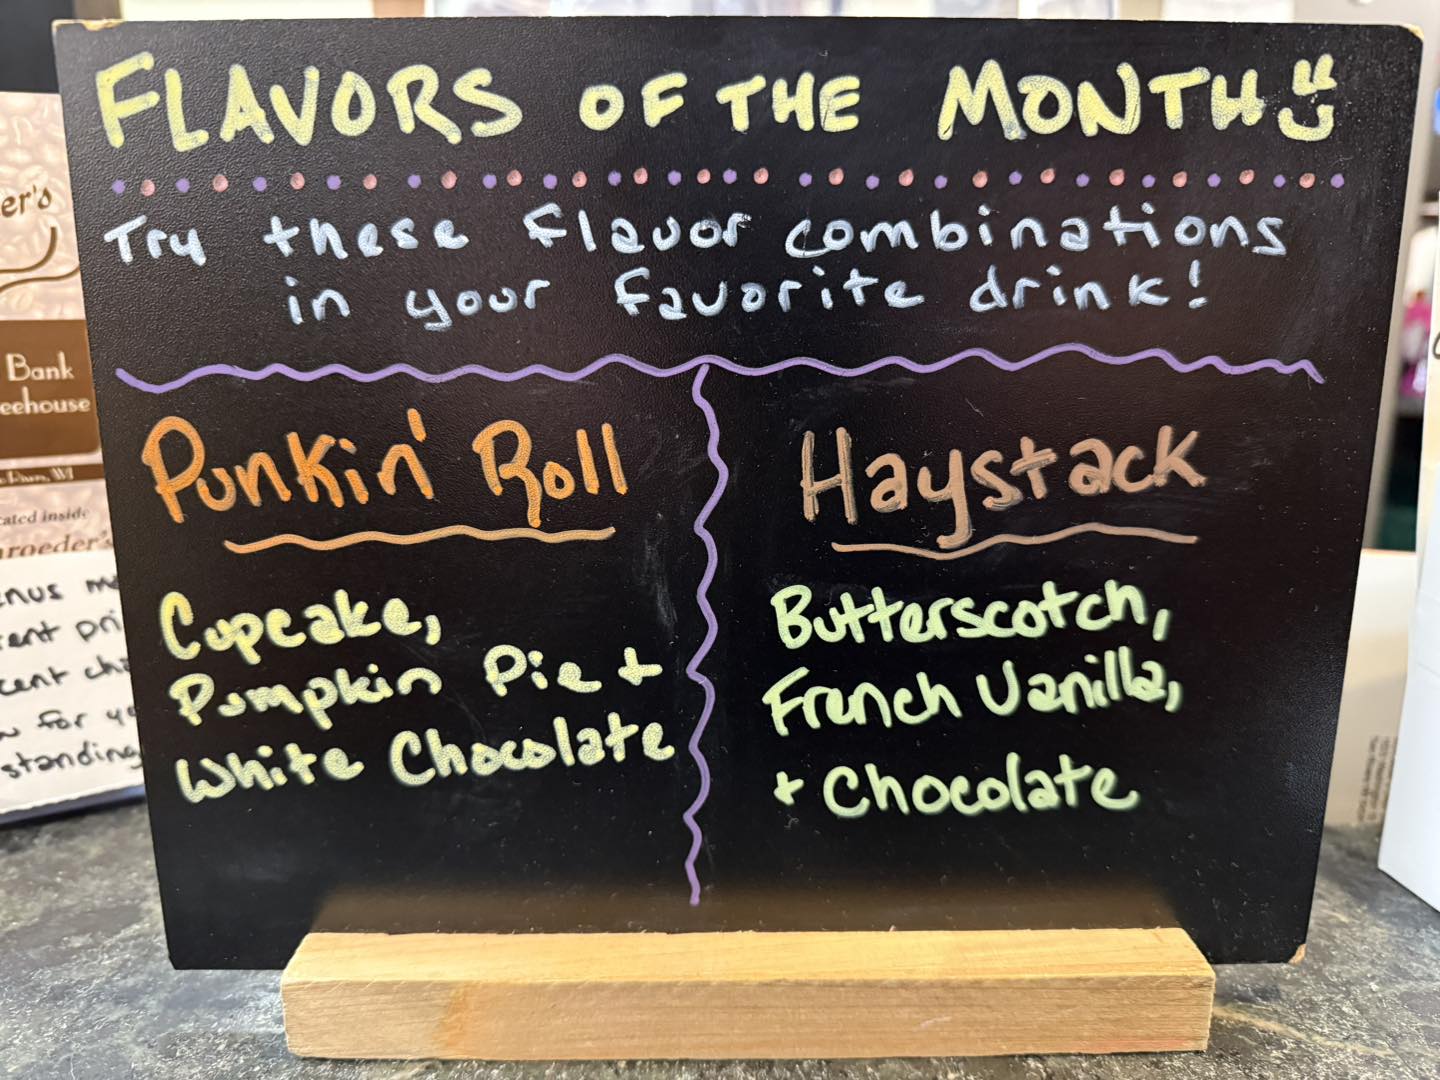 FLAVORS OF THE MONTH
Try these flavor combinations
in your favorite drink!
Punkin' Roll
Cupcake,
Pumpkin Pie +
White Chocolate
Haystack
Butterscotch,
French Vanilla,
+ Chocolate
er's
Bank
eehouse
WI
cated inside
hroeder's
enus
rent
cent
for
standing